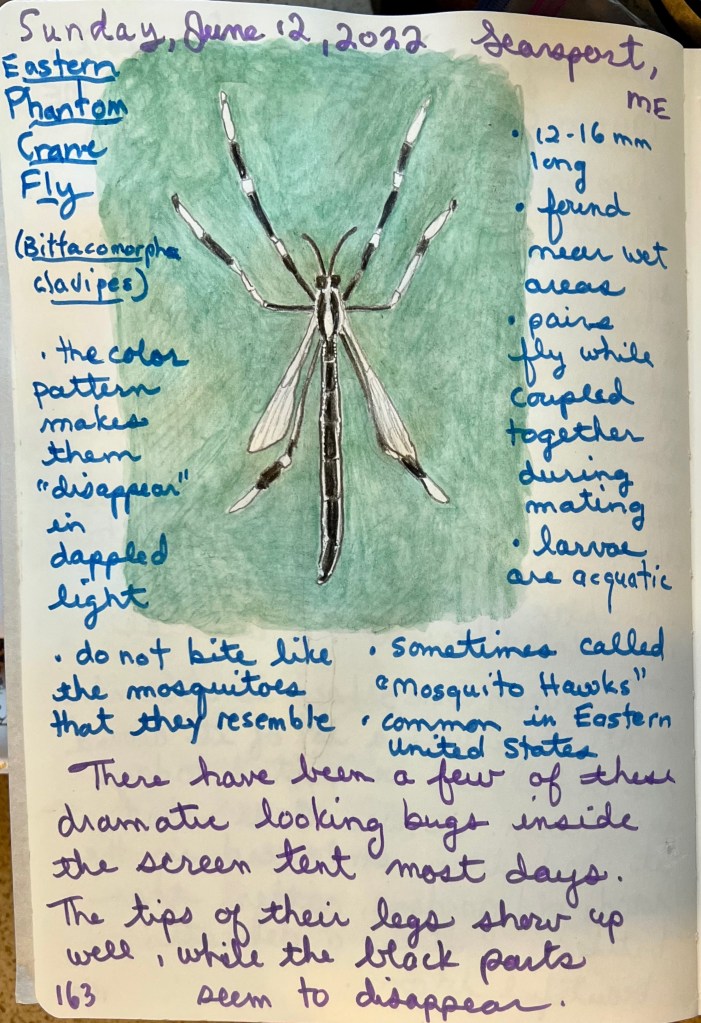 Sunday, June 12, 2022 Searsport,
ME
Eastern
Phantom
Crane
Fly
(Bittacomorpha
clavipes)
• the color
pattern
makes
them
"disappear"
in
dappled
light
• 12-16 mm
long
• found
near wet
areas
• pairs
fly while
coupled
together
during
mating
• larvae
are acquatic
• do not bite like
the mosquitoes
that they resemble
• sometimes called
"Mosquito Hawks"
• common in Eastern
United States
There have been a few of these
dramatic looking bugs inside
the screen tent most days.
The tips of their legs show up
well, while the black parts
seem to disappear.
163